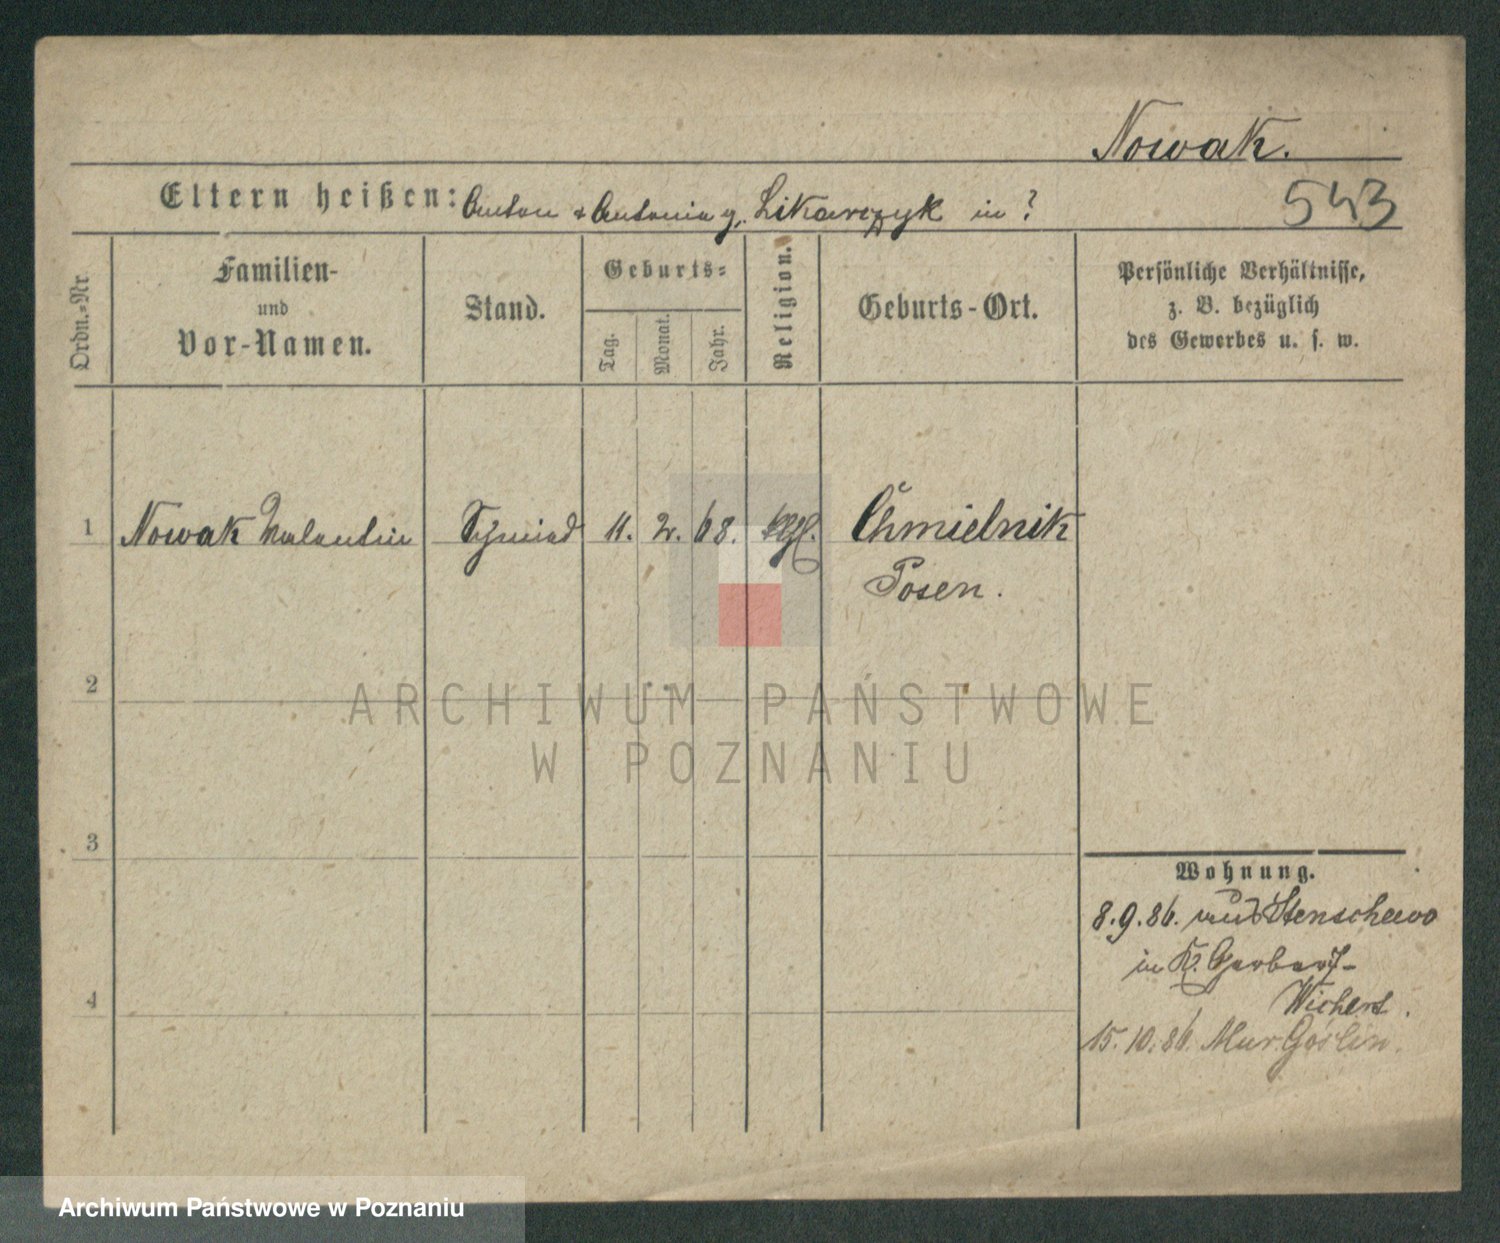 Nowak.
Eltern heißen: Anton + Antonia g. Likarczyk in ?
543
Ordn.-Nr.
Familien-
und
Vor-Namen.
Stand.
Geburts-
Tag.
Monat.
Jahr.
Religion.
Geburts-Ort.
Persönliche Verhältnisse,
z. B. bezüglich
des Gewerbes u. s. w.
1 Nowak Valentin Schmied 11. 2. 68. Chmielnik
Posen.
2
ARCHIWUM PAŃSTWOWE
W POZNANIU
3
Wohnung.
8.9.86. aus Stenschewo
in K. Gerberst-
Wichert.
4
15.10.86. Mur. Goslin.
Archiwum Państwowe w Poznaniu